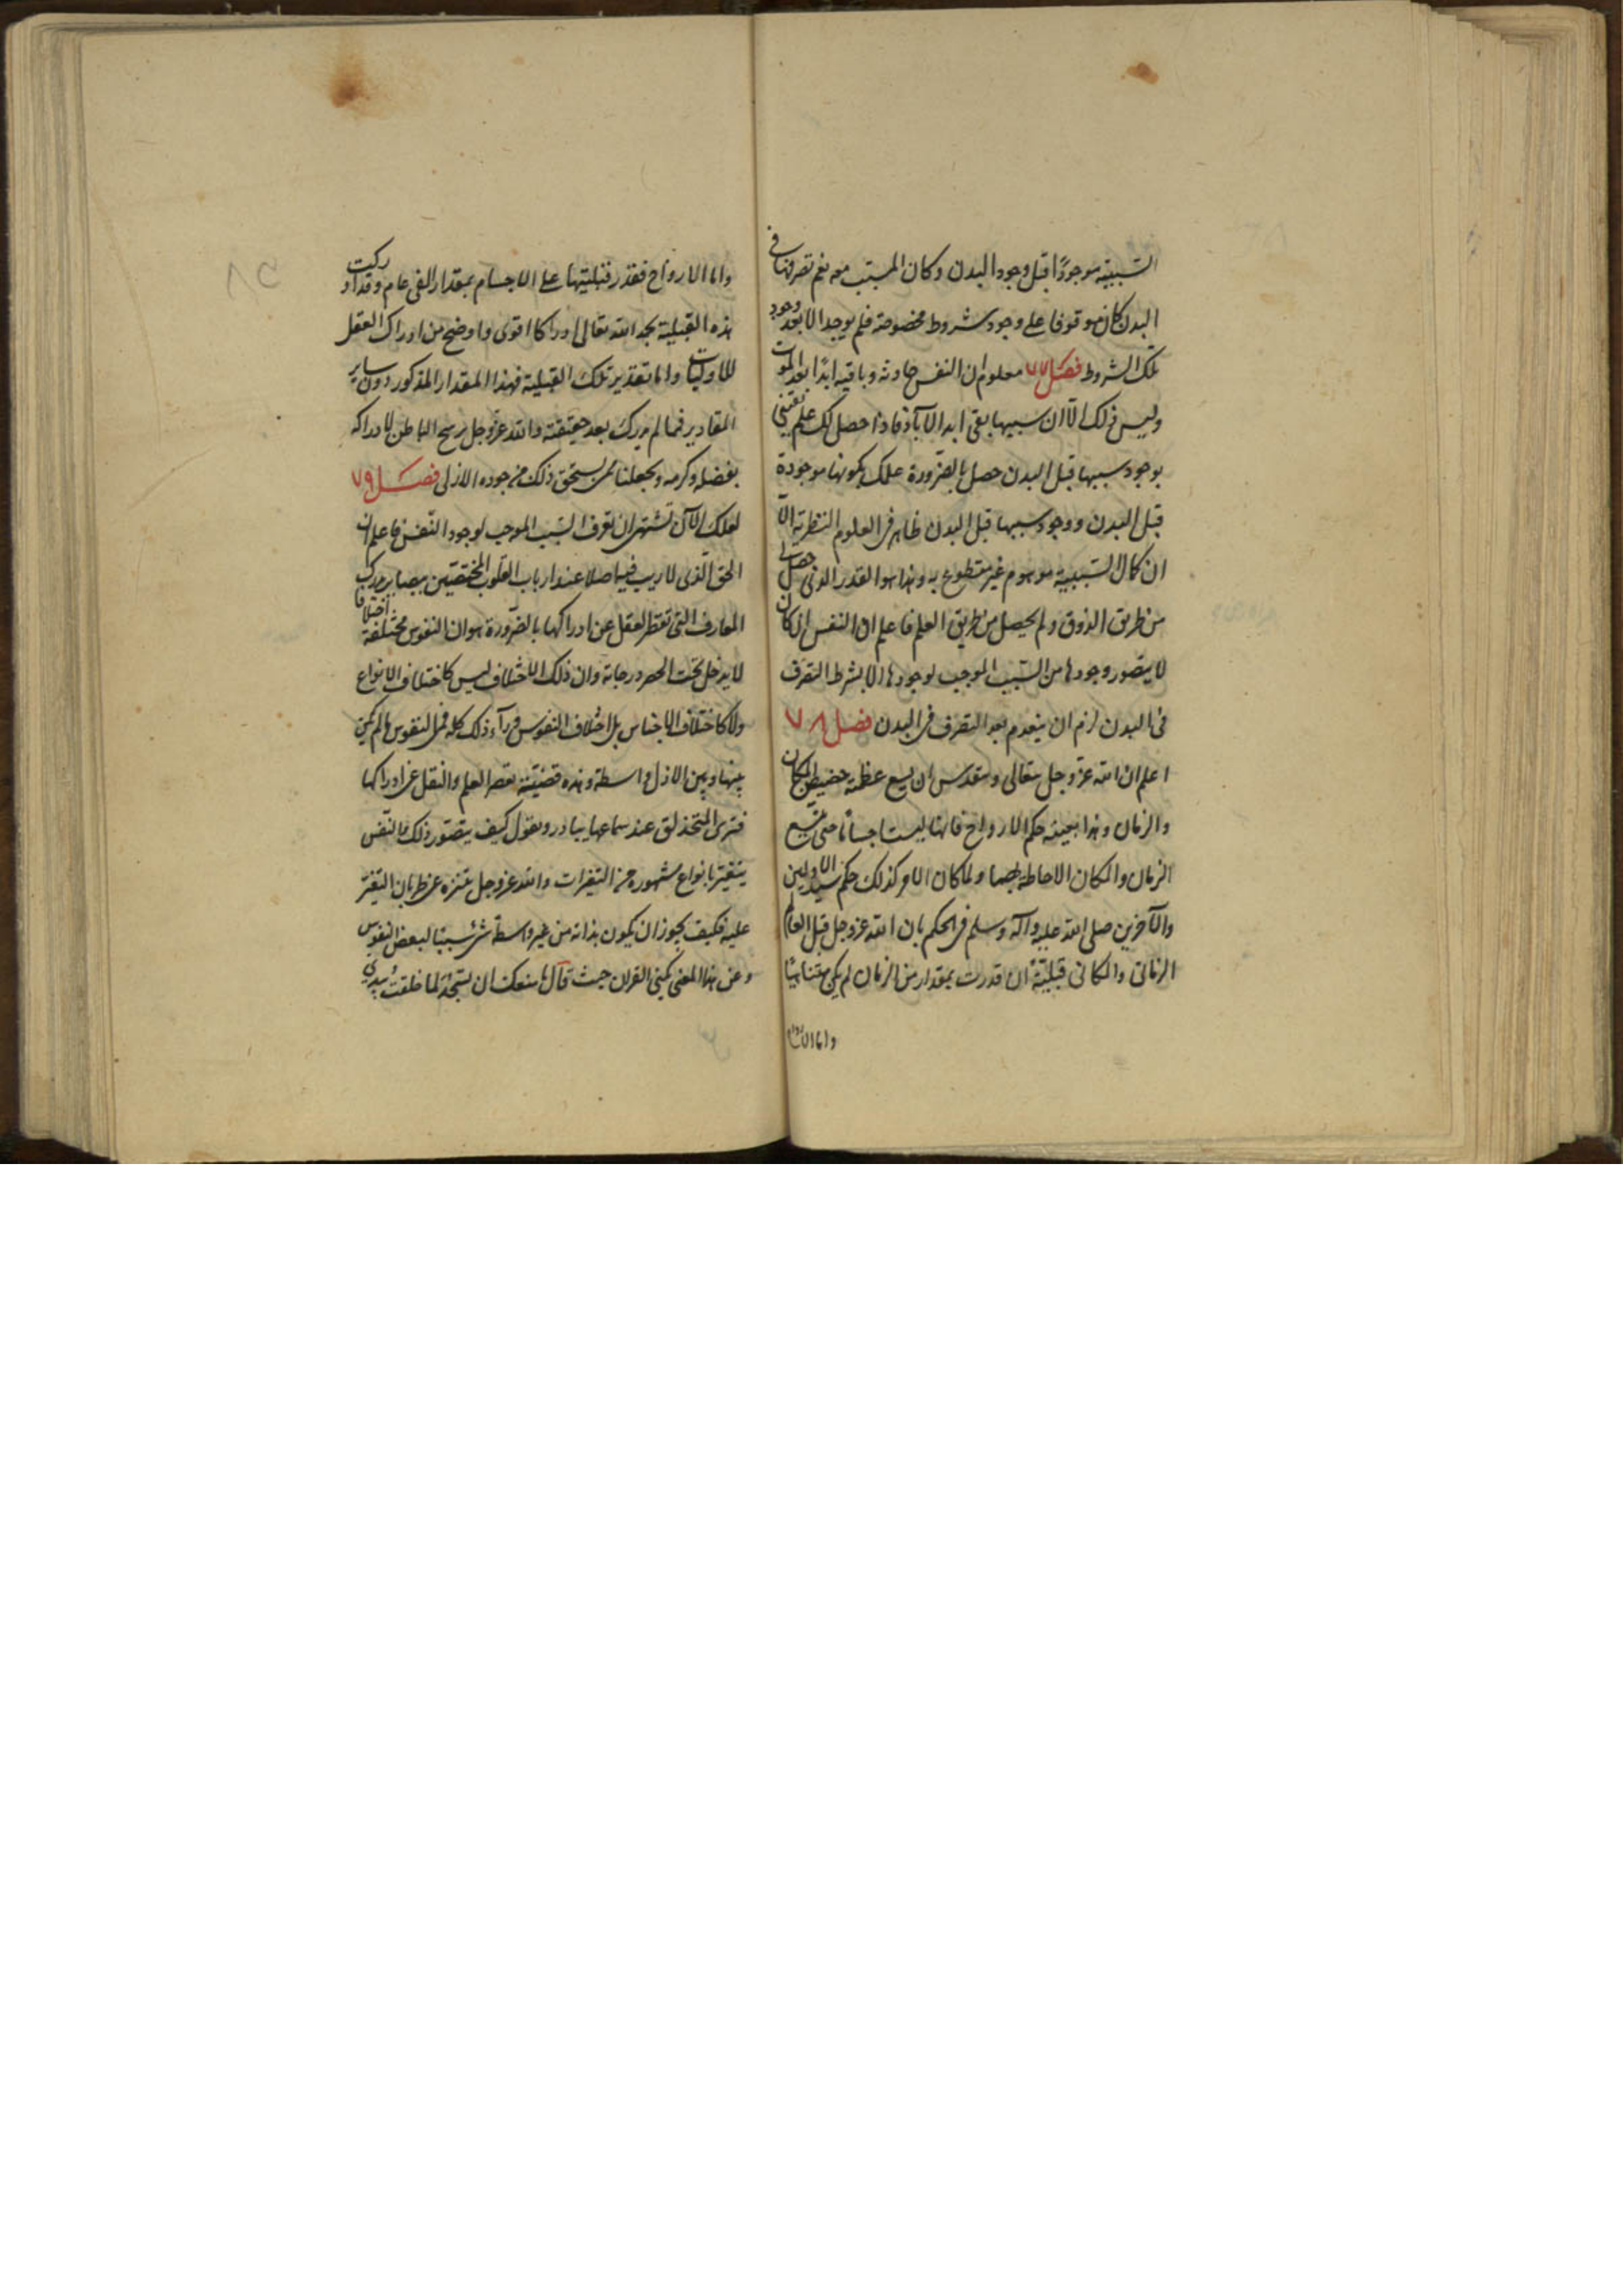 السببية موجودًا قبل وجود البدن وكان المسبب معه نعم تصرفها في
البدن كان موقوفا على وجود شروط مخصوصة فلم يوجد الا بعد وجود
تلك الشروط فصل ٧٧ معلوم ان النفس حادثة وباقية ابدًا بعد الموت
وليس ذلك الّا ان سببها بقى ابد الآباد فاذا حصل لك علم يقيني
بوجود سببها قبل البدن حصل بالضرورة علمك بكونها موجودة
قبل البدن ووجود سببها قبل البدن ظاهر في العلوم النظرية الّا
ان كمال السببية موهوم غير مقطوع به وهذا هو القدر الذي حصل لي
من طريق الذوق ولم يحصل من طريق العلم فاعلم ان النفس ان كان
لا يتصور وجودها من السبب الموجب لوجودها الا بشرط التصرف
في البدن لزم ان ينعدم بعد التصرف في البدن فصل ٧٨
اعلم ان الله عزّ وجل يتعالى ويتقدس ان يسع عظمته حضيض المكان
والزمان وهذا بعينه حكم الارواح فانها ليست اجسامًا حتى يتسع
الزمان والمكان الاحاطة بها ولما كان الامر كذلك حكم سيد الاولين
والآخرين صلى الله عليه وآله وسلم في الحكم بان الله عز وجل قبل العالم
الزماني والمكاني قبليّة ان قدرت بمقدار من الزمان لم يكن متناهيًا
واما الارواح
واما الارواح فقدر قبليتها على الاجسام بمقدار الفى عام وقد ادركت
هذه القبلية بحمد الله تعالى ادراكا اقوى واوضح من ادراك العقل
للاوليات واما تقدير تلك القبلية فهذا المقدار المذكور دون ساير
المقادير فمما لم يدرك بعد حقيقته والله عزوجل يرشح الباطن لادراكه
بفضله وكرمه ويجعلنا ممن يستحق ذلك من جوده الازلى فصل ٧٩
لعلك الآن تشتهى ان تعرف السبب الموجب لوجود النفس فاعلم ان
الحق الذى لا ريب فيه اصلا عند ارباب القلوب المختصين ببصاير درك
المعارف التى تقصر العقل عن ادراكها بالضرورة هو ان النفوس مختلفة اختلافا
لا يدخل تحت الحصر درجاته وان ذلك الاختلاف ليس كاختلاف الانواع
ولا كاختلاف الاجناس بل اختلاف النفوس ورآء ذلك كله فمن النفوس ما لم يكن
بينها وبين الازل واسطة وهذه قضيّة يقصر العلم والعقل عن ادراكها
فترى المتحذلق عند سماعها يبادر ويقول كيف يتصور ذلك فالنفس
يتغير بانواع مشهورة من التغيرات والله عزوجل يتنزه عن طريان التغير
عليه فكيف يجوز ان يكون بذاته من غير واسطة شئ سببًا لبعض النفوس
وعن هذا المعنى كنى القران حيث قال ما منعك ان تسجد لما خلقت بيدى